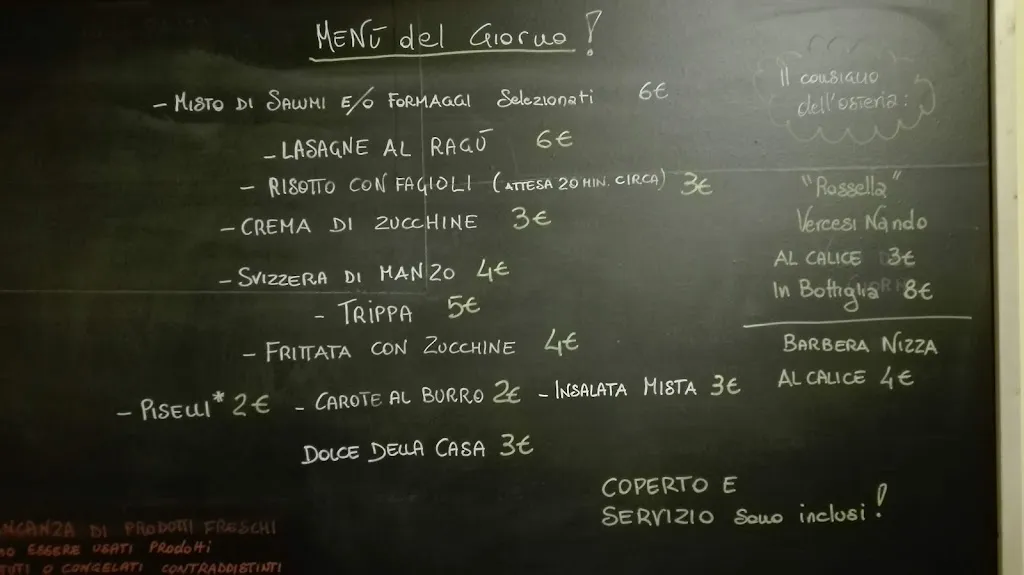 MENÙ del Giorno!
- MISTO DI SALUMI E/O FORMAGGI Selezionati 6€
- LASAGNE AL RAGÙ 6€
- RISOTTO CON FAGIOLI (ATTESA 20 MIN. CIRCA) 3€
- CREMA DI ZUCCHINE 3€
- SVIZZERA DI MANZO 4€
- TRIPPA 5€
- FRITTATA CON ZUCCHINE 4€
- PISELLI* 2€ - CAROTE AL BURRO 2€ - INSALATA MISTA 3€
DOLCE DELLA CASA 3€
Il consiglio
dell'osteria:
"Rossella"
Vercesi Nando
AL CALICE 3€
In Bottiglia 8€
BARBERA NIZZA
AL CALICE 4€
COPERTO E
SERVIZIO sono inclusi!
DI PRODOTTI FRESCHI
ESSERE USATI PRODOTTI
O CONGELATI CONTRADDISTINTI